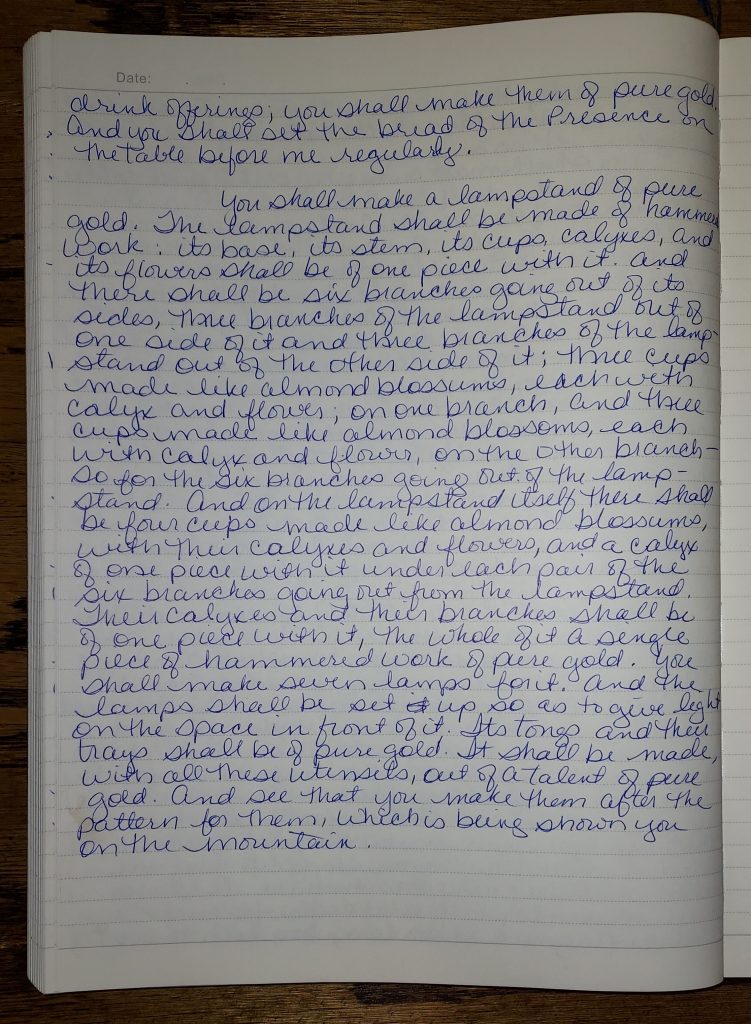 Date:
drink offerings; you shall make them of pure gold.
And you shall set the bread of the Presence on
the table before me regularly.
You shall make a lampstand of pure
gold. The lampstand shall be made of hammered
work: its base, its stem, its cups, calyxes, and
its flowers shall be of one piece with it. And
there shall be six branches going out of its
sides, three branches of the lampstand out of
one side of it and three branches of the lamp-
stand out of the other side of it; three cups
made like almond blossums, each with
calyx and flower; on one branch, and three
cups made like almond blossoms, each
with calyx and flower, on the other branch-
so for the six branches going out of the lamp-
stand. And on the lampstand itself there shall
be four cups made like almond blossums,
with their calyxes and flowers, and a calyx
of one piece with it under each pair of the
six branches going out from the lampstand.
Their calyxes and their branches shall be
of one piece with it, the whole of it a single
piece of hammered work of pure gold. You
shall make seven lamps for it. And the
lamps shall be set up so as to give light
on the space in front of it. Its tongs and their
trays shall be of pure gold. It shall be made,
with all these utensils, out of a talent of pure
gold. And see that you make them after the
pattern for them, which is being shown you
on the mountain.